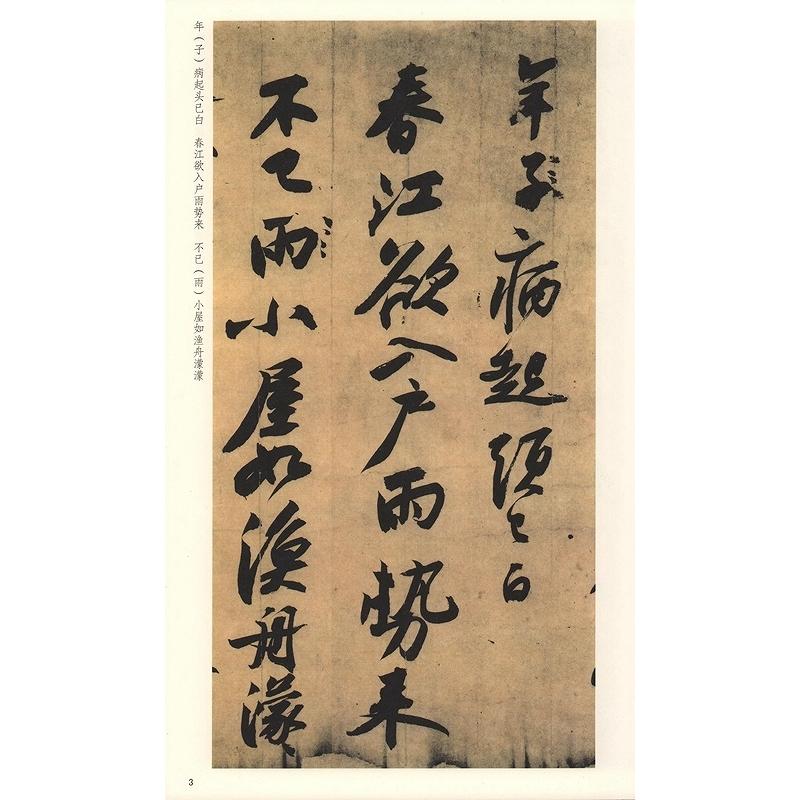 年子病起頭已白
春江欲入户雨勢来
不已雨小屋如漁舟濛〻
年（子）病起头已白　春江欲入户雨势来　不已（雨）小屋如渔舟濛濛
3